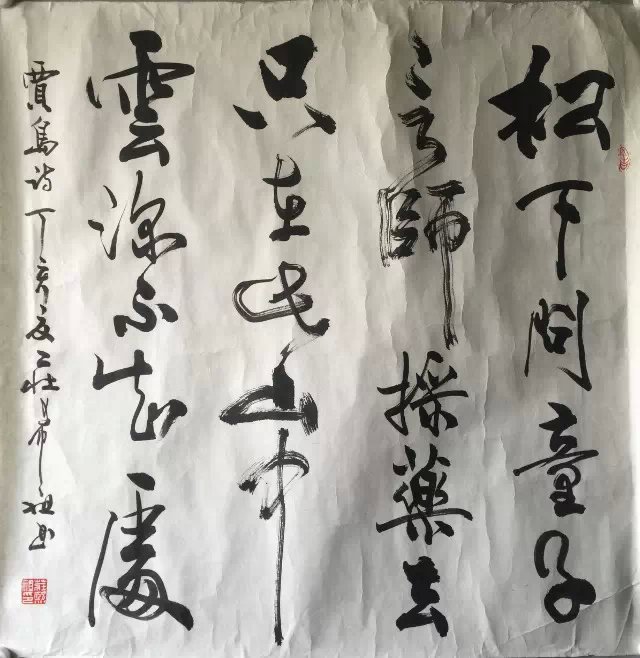 松下問童子
言師採藥去
只在此山中
雲深不知處
賈島詩丁亥夏莊希祖書